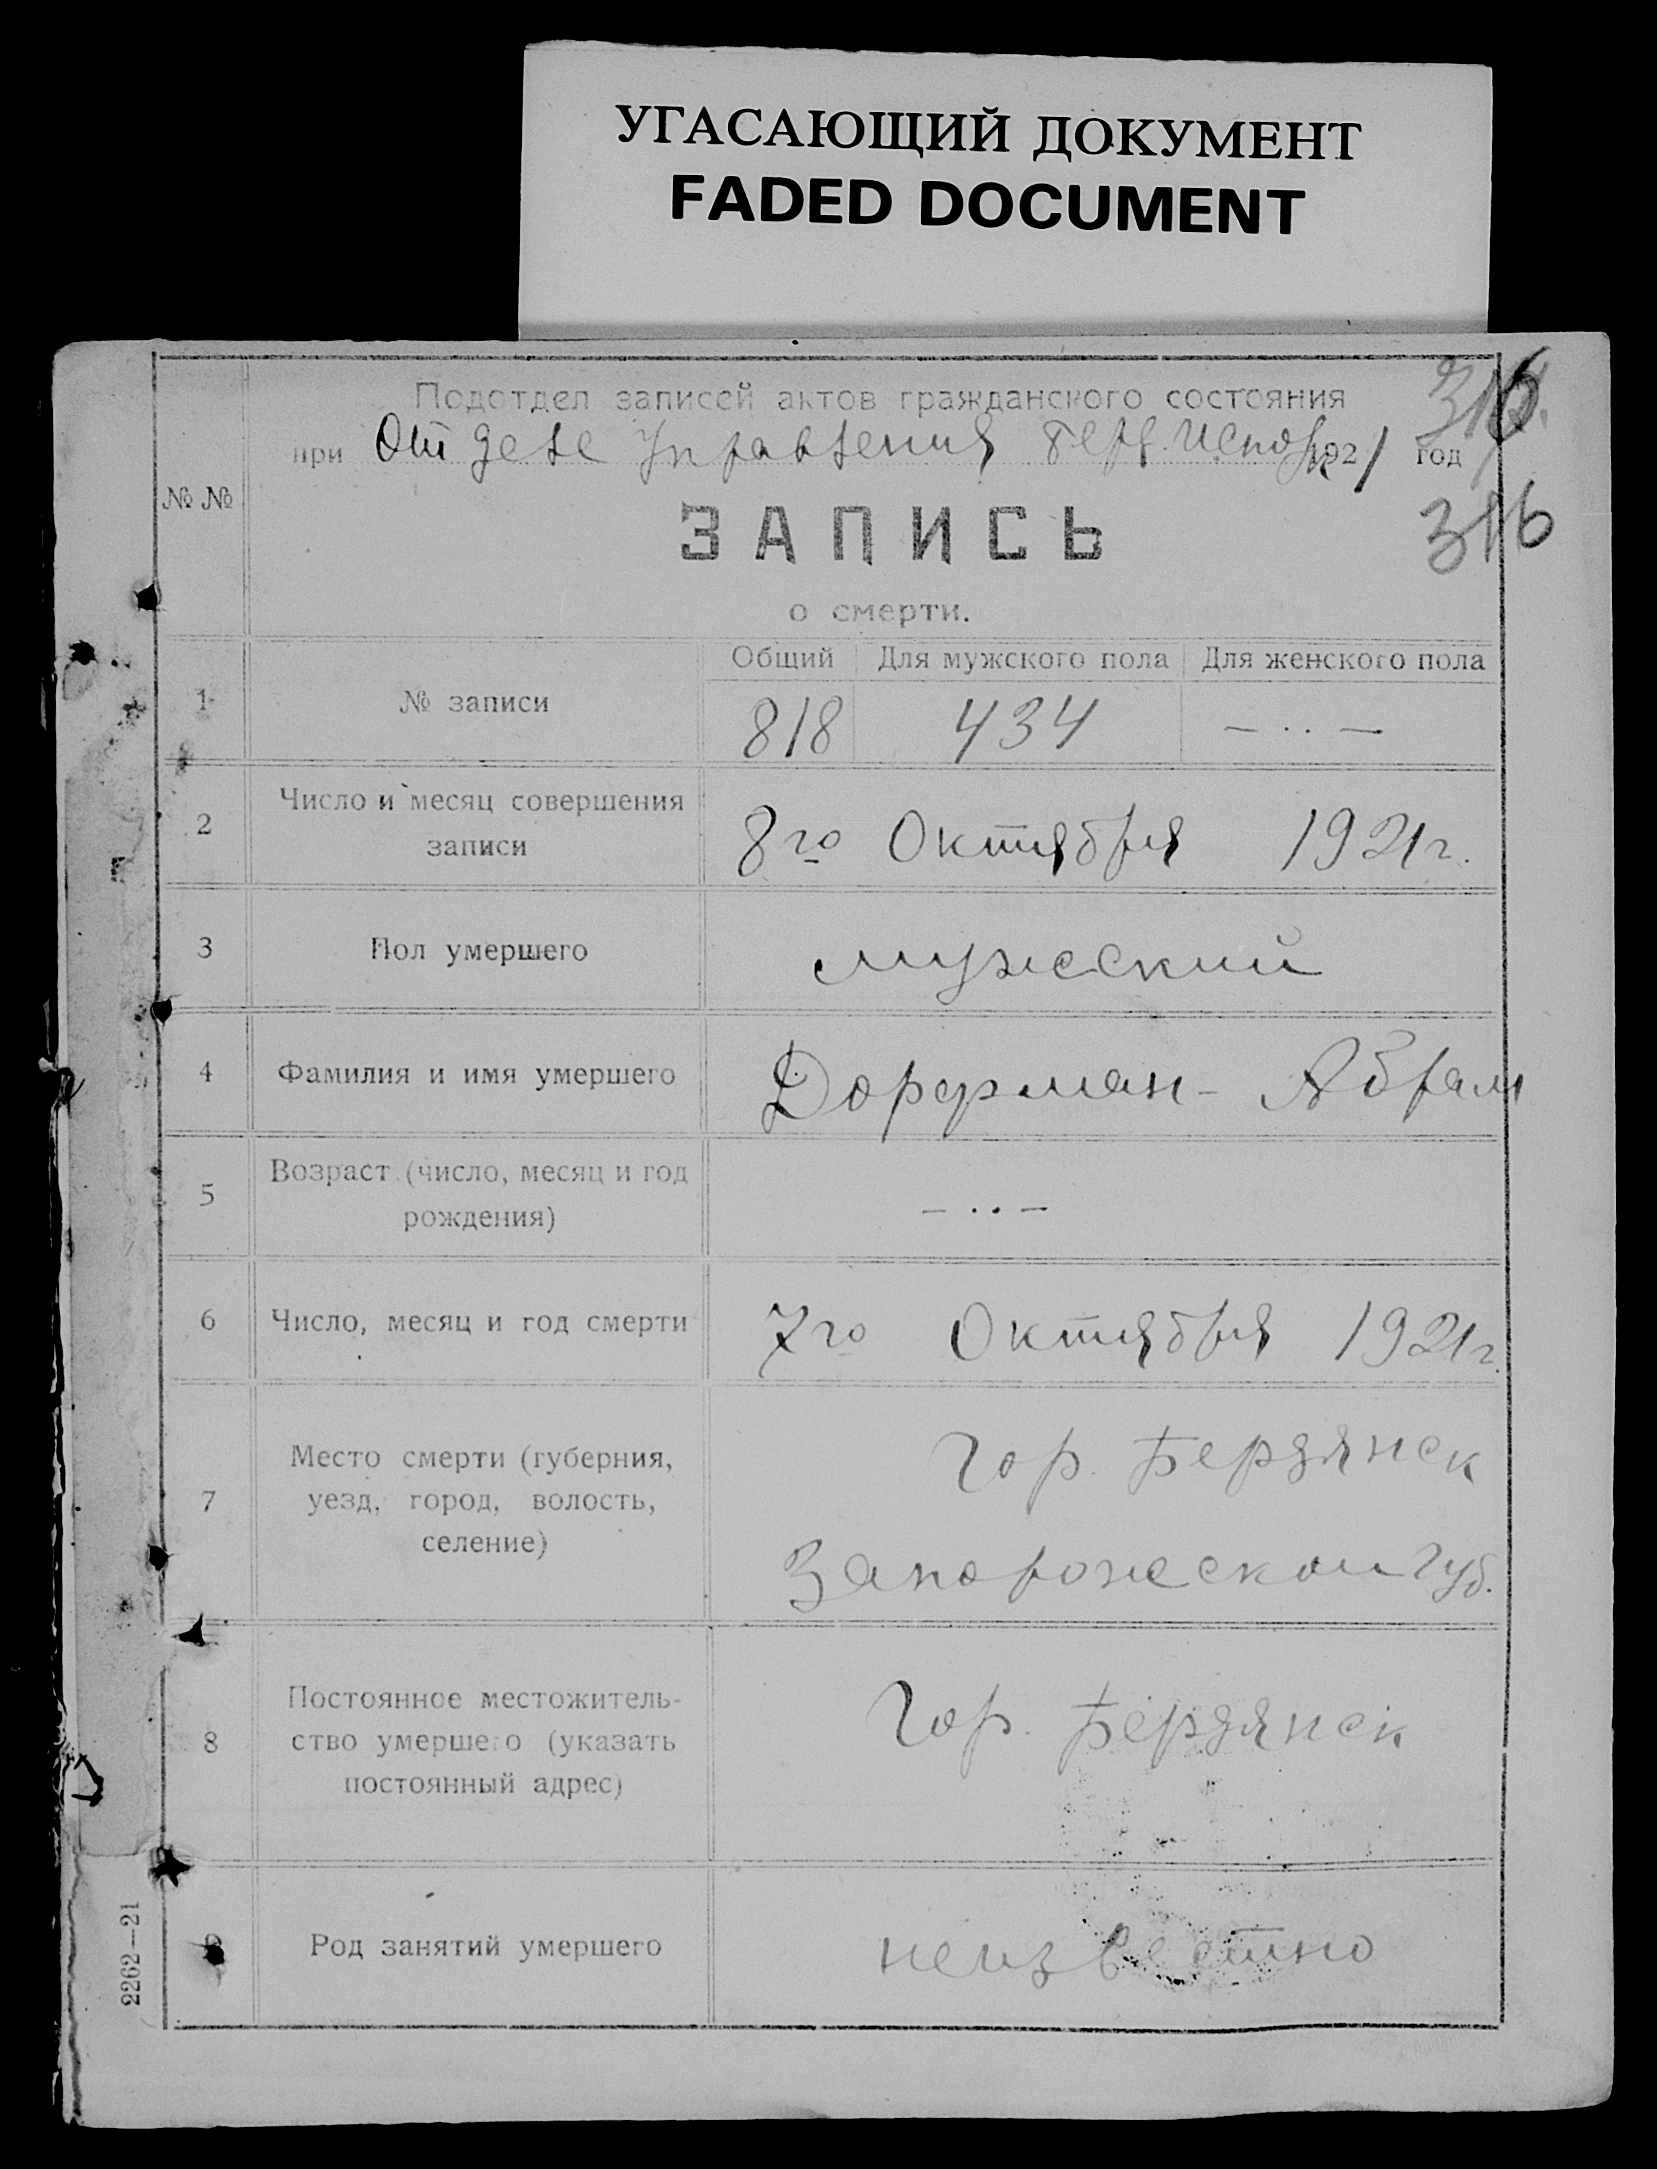 УГАСАЮЩИЙ ДОКУМЕНТ
FADED DOCUMENT
316
Подотдел записей актов гражданского состояния
при Отделе Управления Берд. Исполк 1921 год
316
№ №
ЗАПИСЬ
о смерти.
Общий Для мужского пола Для женского пола
1 № записи 818 434 — ·· —
2 Число и месяц совершения
записи
8го Октября 1921 г.
3 Пол умершего мужеский
4 Фамилия и имя умершего Дорфман - Абрам
5 Возраст (число, месяц и год
рождения)
— ·· —
6 Число, месяц и год смерти 7го Октября 1921 г.
7 Место смерти (губерния,
уезд, город, волость,
селение)
Гор. Бердянск
Запорожеской губ.
8 Постоянное местожитель-
ство умершего (указать
постоянный адрес)
Гор. Бердянск
9 Род занятий умершего неизвестно
2262—21